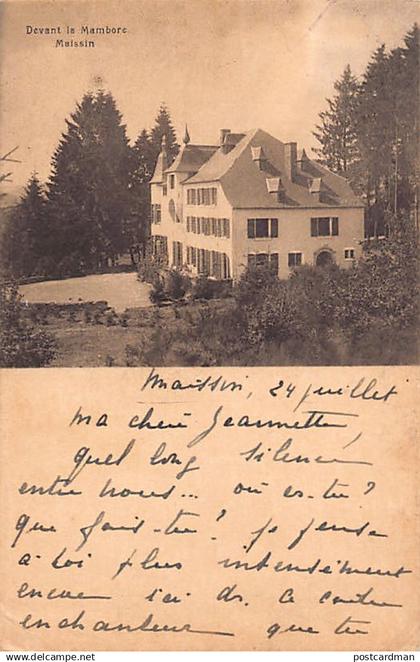 Devant la Mambore
Maissin
Maissin, 24 juillet
Ma chère Jeannette,
Quel long silence
entre nous... où es-tu?
que fais-tu? je pense
à toi plus intensément
encore ici ds. ce centre
enchanteur que tu
postcardman.com